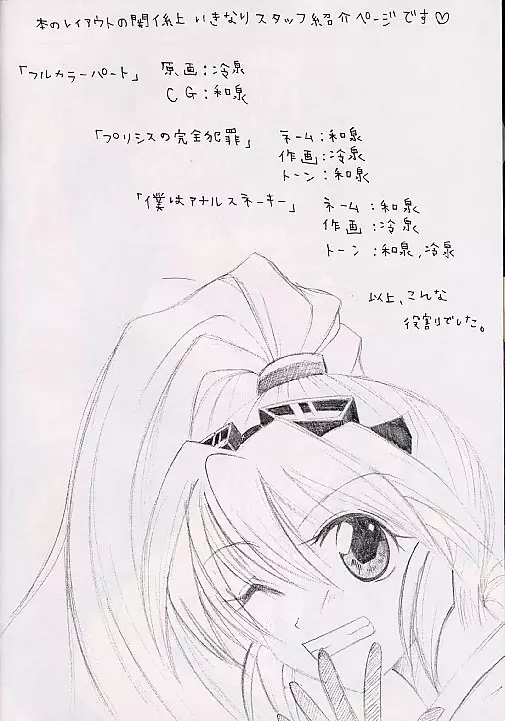 本のレイアウトの関係上 いきなりスタッフ紹介ページです♡
「フルカラーパート」 原画:冷泉
CG:和泉
「プリシスの完全犯罪」 ネーム:和泉
作画:冷泉
トーン:和泉
「僕はアナルスネーキー」 ネーム:和泉
作画:冷泉
トーン:和泉,冷泉
以上、こんな
役割りでした。